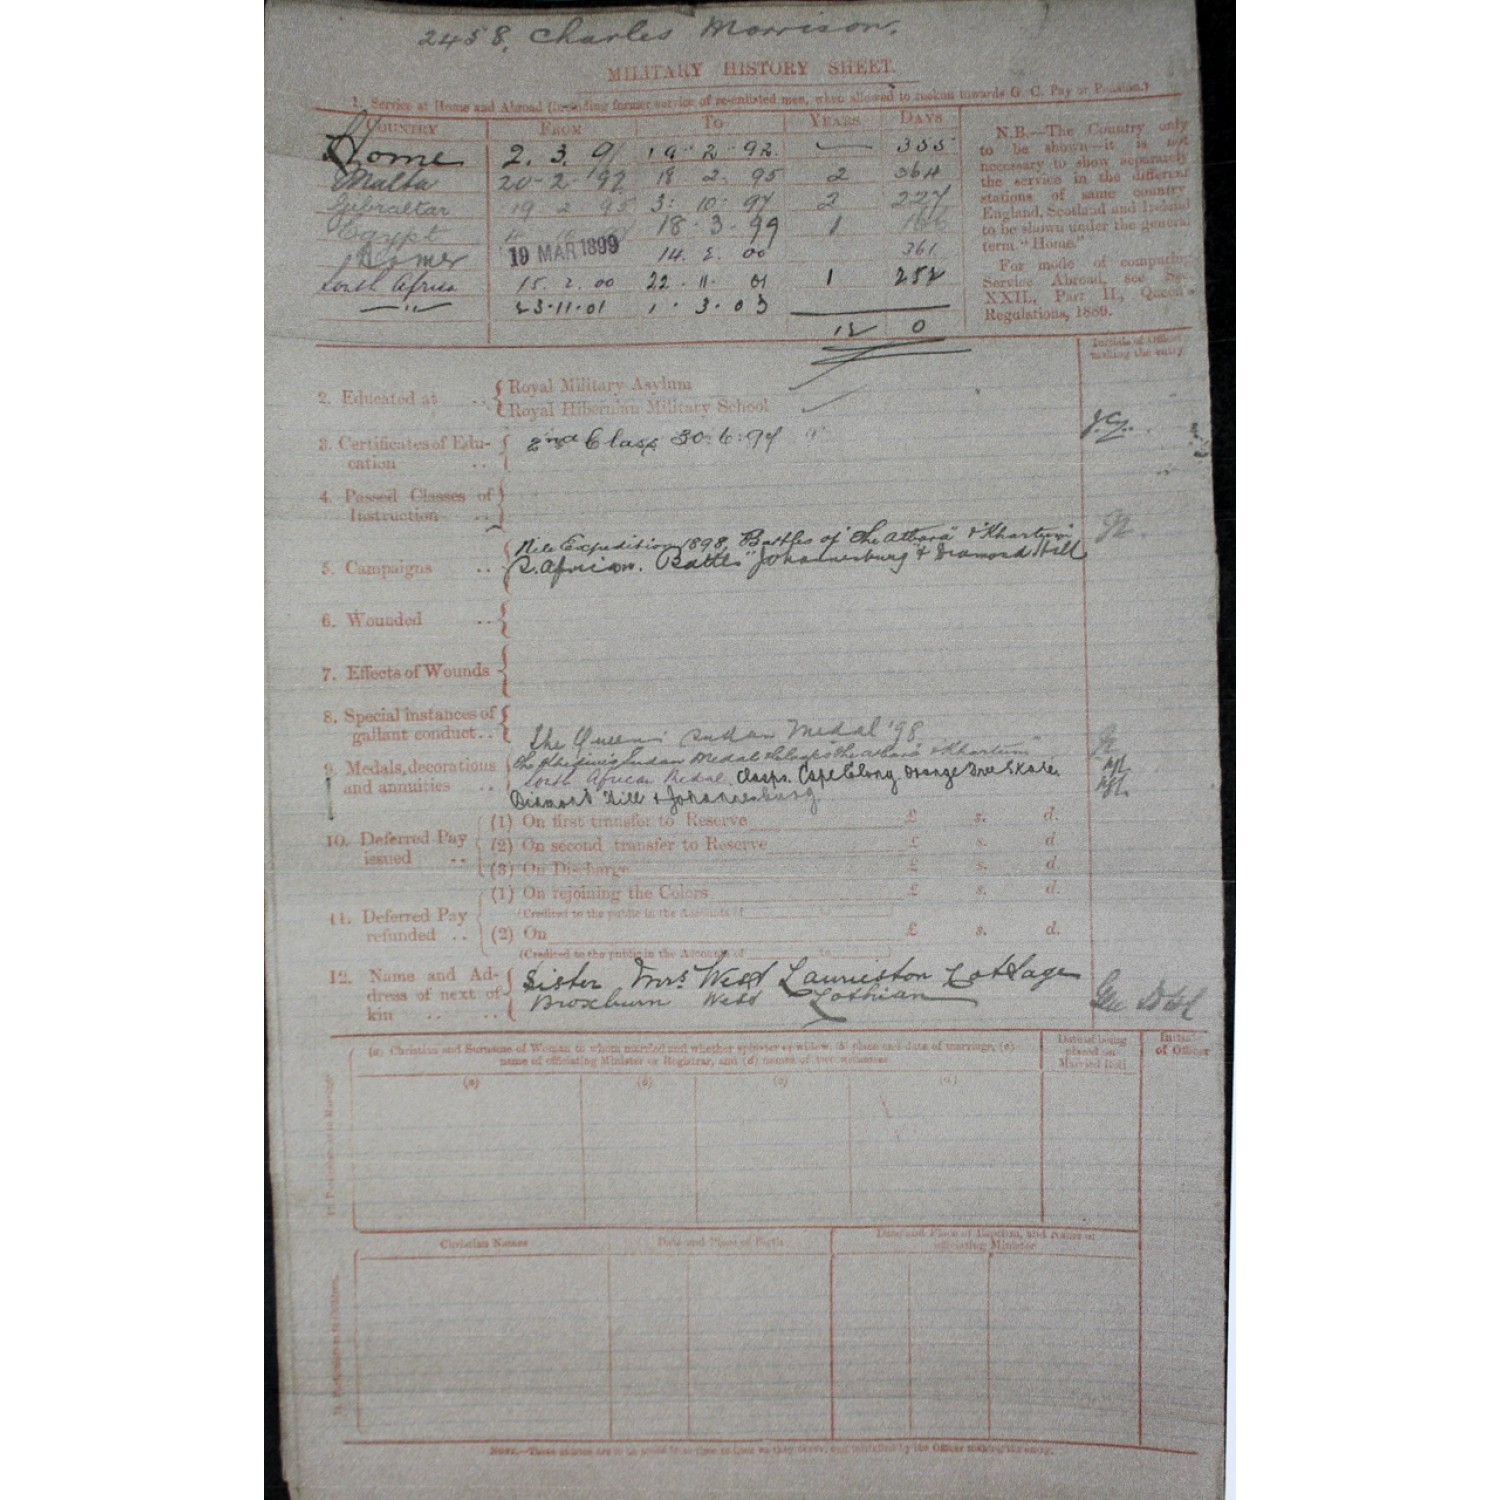 2458, Charles Morrison.
MILITARY HISTORY SHEET.
1. Service at Home and Abroad (including former service of re-enlisted men, when allowed to reckon towards G. C. Pay or Pension.)
COUNTRY FROM TO YEARS DAYS
Home 2. 3. 91 19 - 2 - 92 — 355
Malta 20 - 2 - 92 18 2. 95 2 364
Gibraltar 19 2 95 3. 10. 97 2 227
Egypt 18 - 3 - 99 1
Home 19 MAR 1899 14. 2. 00 361
South Africa 15. 2. 00 22 . 11. 01 1 252
23.11.01 1 . 3. 03
12 0
N.B.—The Country only
to be shown—it is not
necessary to show separately
the service in the different
stations of same country
England, Scotland and Ireland
to be shown under the general
term "Home."
For mode of computing
Service Abroad, see Sec.
XXII., Part II., Queen's
Regulations, 1889.
Initials of Officer
making the entry
2. Educated at .. Royal Military Asylum
Royal Hibernian Military School
3. Certificates of Edu-
cation ..
2nd Class 30.6.94
4. Passed Classes of
Instruction ..
5. Campaigns ..
Nile Expedition 1898, Battles of "The Atbara" & "Khartum"
S. African. Battles "Johannesburg" & Diamond Hill
6. Wounded ..
7. Effects of Wounds
8. Special instances of
gallant conduct..
The Queens Sudan Medal '98
9. Medals, decorations
and annuities ..
The Khedive's Sudan Medal & Clasps "The Atbara" & "Khartum"
South African Medal. Clasps. Cape Colony. Orange Free State.
Diamond Hill & Johannesburg
10. Deferred Pay
issued ..
(1) On first transfer to Reserve £ s. d.
(2) On second transfer to Reserve £ s. d
(3) On Discharge £ s. d.
11. Deferred Pay
refunded ..
(1) On rejoining the Colors £ s. d.
(Credited to the public in the Accounts of to )
(2) On £ s. d.
(Credited to the public in the Accounts of to )
12. Name and Ad-
dress of next of
kin .. ..
Sister Mrs West Laurieston Cottage
Broxburn West Lothian
(a) Christian and Surname of Woman to whom married and whether spinster or widow, (b) place and date of marriage, (c)
name of officiating Minister or Registrar, and (d) names of two witnesses
Date of being
placed on
Married Roll
Initials
of Officer
(a) (b) (c) (d)
Christian Names Date and Place of Birth
Date and Place of Baptism, and name of
officiating Minister